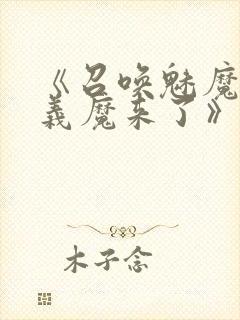 《召唤魅魔
義魔来了》
木子念